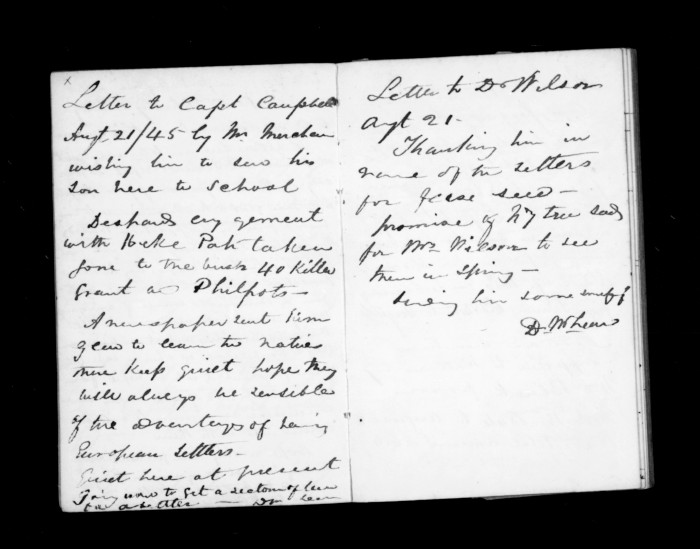 Letter to Capt Campbell
Augt 21/45 by Mr Merchan
wishing him to send his
Son here to School
Despards engagement
with Heke Pah taken
gone to the bush 40 Killed
Grant and Philpots
A newspaper sent him
glad to learn the natives
there keep quiet hope they
will always be sensible
of the advantages of having
European Settlers
Quiet here at present
Trying now to get a section of land
for a settler — Dr
Letter to Dr Wilson
Augt 21
Thanking him in
name of the settlers
for seed
promise of NZ tree seeds
for Mrs Wilson to see
them in Spring
sending him some snuff
D. McLean